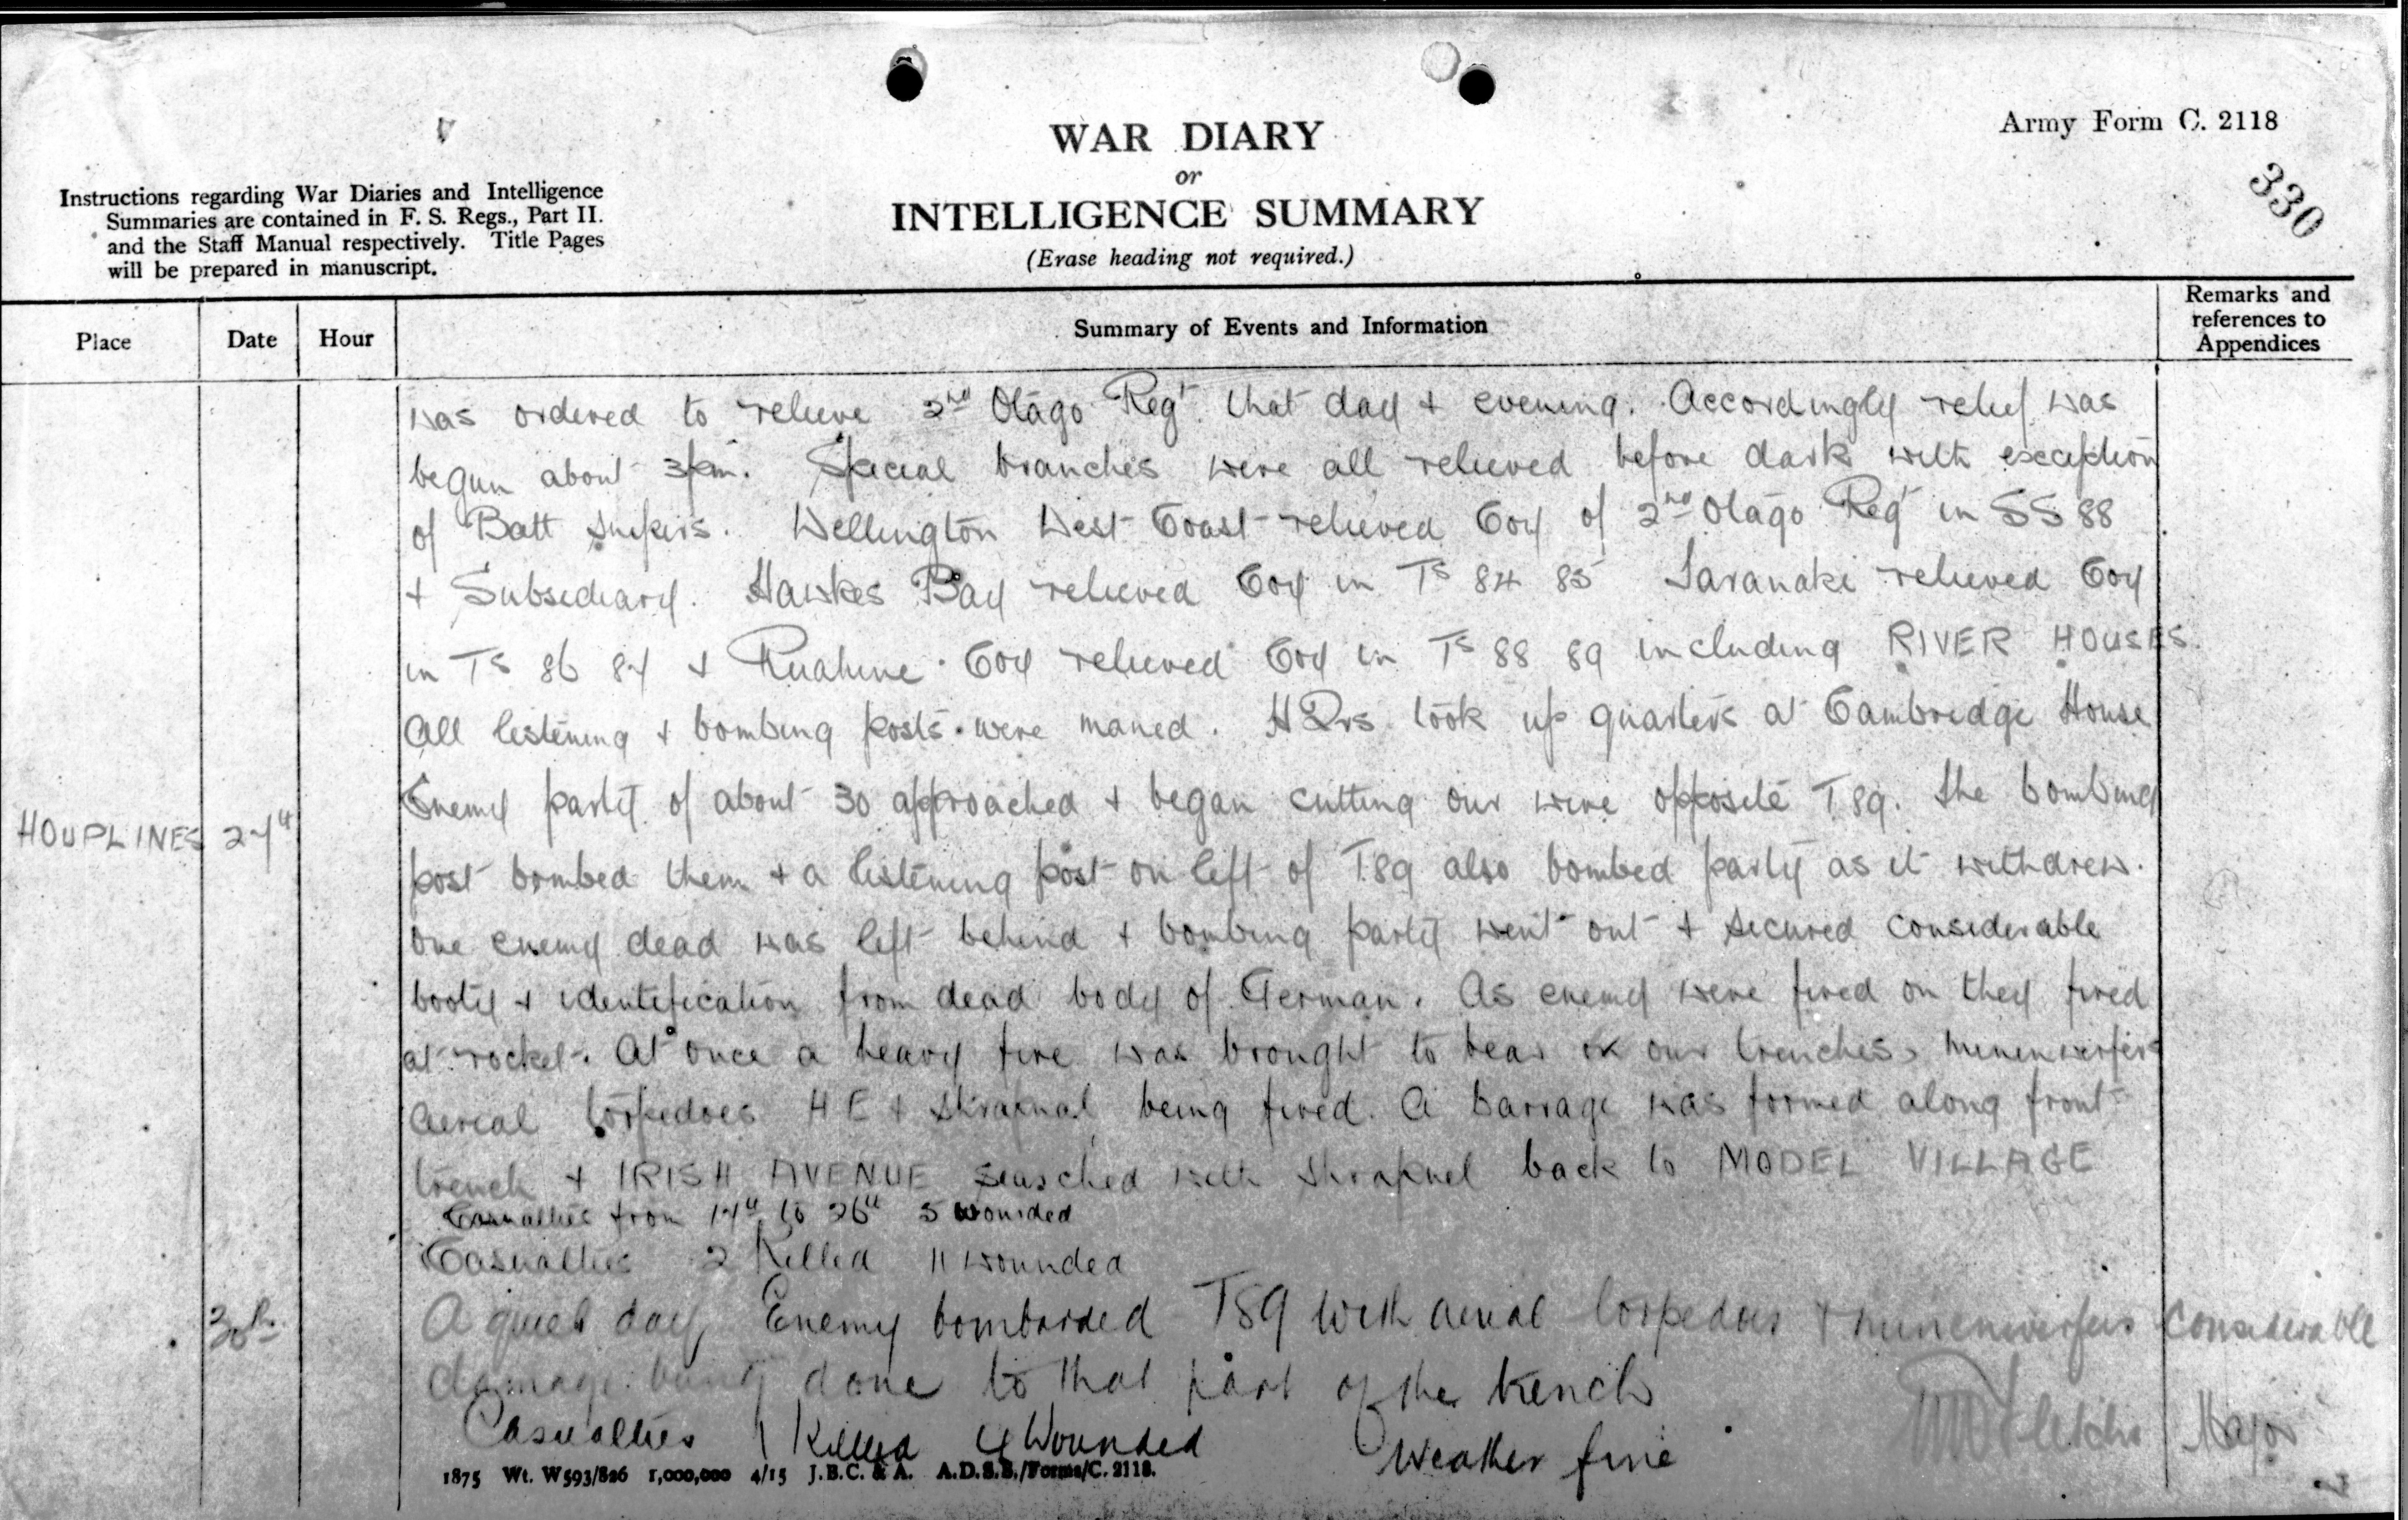 Army Form C. 2118
WAR DIARY
or
INTELLIGENCE SUMMARY
(Erase heading not required.)
330
Instructions regarding War Diaries and Intelligence
Summaries are contained in F. S. Regs., Part II.
and the Staff Manual respectively. Title Pages
will be prepared in manuscript.
Place Date Hour Summary of Events and Information Remarks and
references to
Appendices
was ordered to relieve 2nd Otago Regt that day + evening. Accordingly relief was
begun about 3pm. Special branches were all relieved before dark with exception
of Batt snipers. Wellington West Coast relieved Coy of 2nd Otago Regt in SS 88
+ Subsidiary. Hawkes Bay relieved Coy in Ts 84 85 Taranaki relieved Coy
in Ts 86 87 + Ruahine Coy relieved Coy in Ts 88 89 including RIVER HOUSES.
All listening + bombing posts were maned. HQrs took up quarters at Cambridge House
Enemy party of about 30 approached + began cutting our wire opposite T89. The bombing
HOUPLINES 27th
post bombed them + a listening post on left of T89 also bombed party as it withdrew.
One enemy dead was left behind + bombing party went out + secured considerable
booty + identification from dead body of German. As enemy were fired on they fired
at rocket. At once a heavy fire was brought to bear on our trenches, minenwerfers
aerial torpedoes HE + shrapnal being fired. A barrage was formed along front
trench + IRISH AVENUE searched with shrapnel back to MODEL VILLAGE
Casualties from 17th to 26th 5 wounded
Casualties 2 Killed 11 wounded
30th A quiet day, Enemy bombarded T89 with aerial torpedoes + minenwerfers considerable
damage being done to that part of the trench
Casualties 1 Killed 4 Wounded Weather fine
Fletcher Major
1875 Wt. W593/826 1,000,000 4/15 J.B.C. & A. A.D.S.S./Forms/C. 2118.